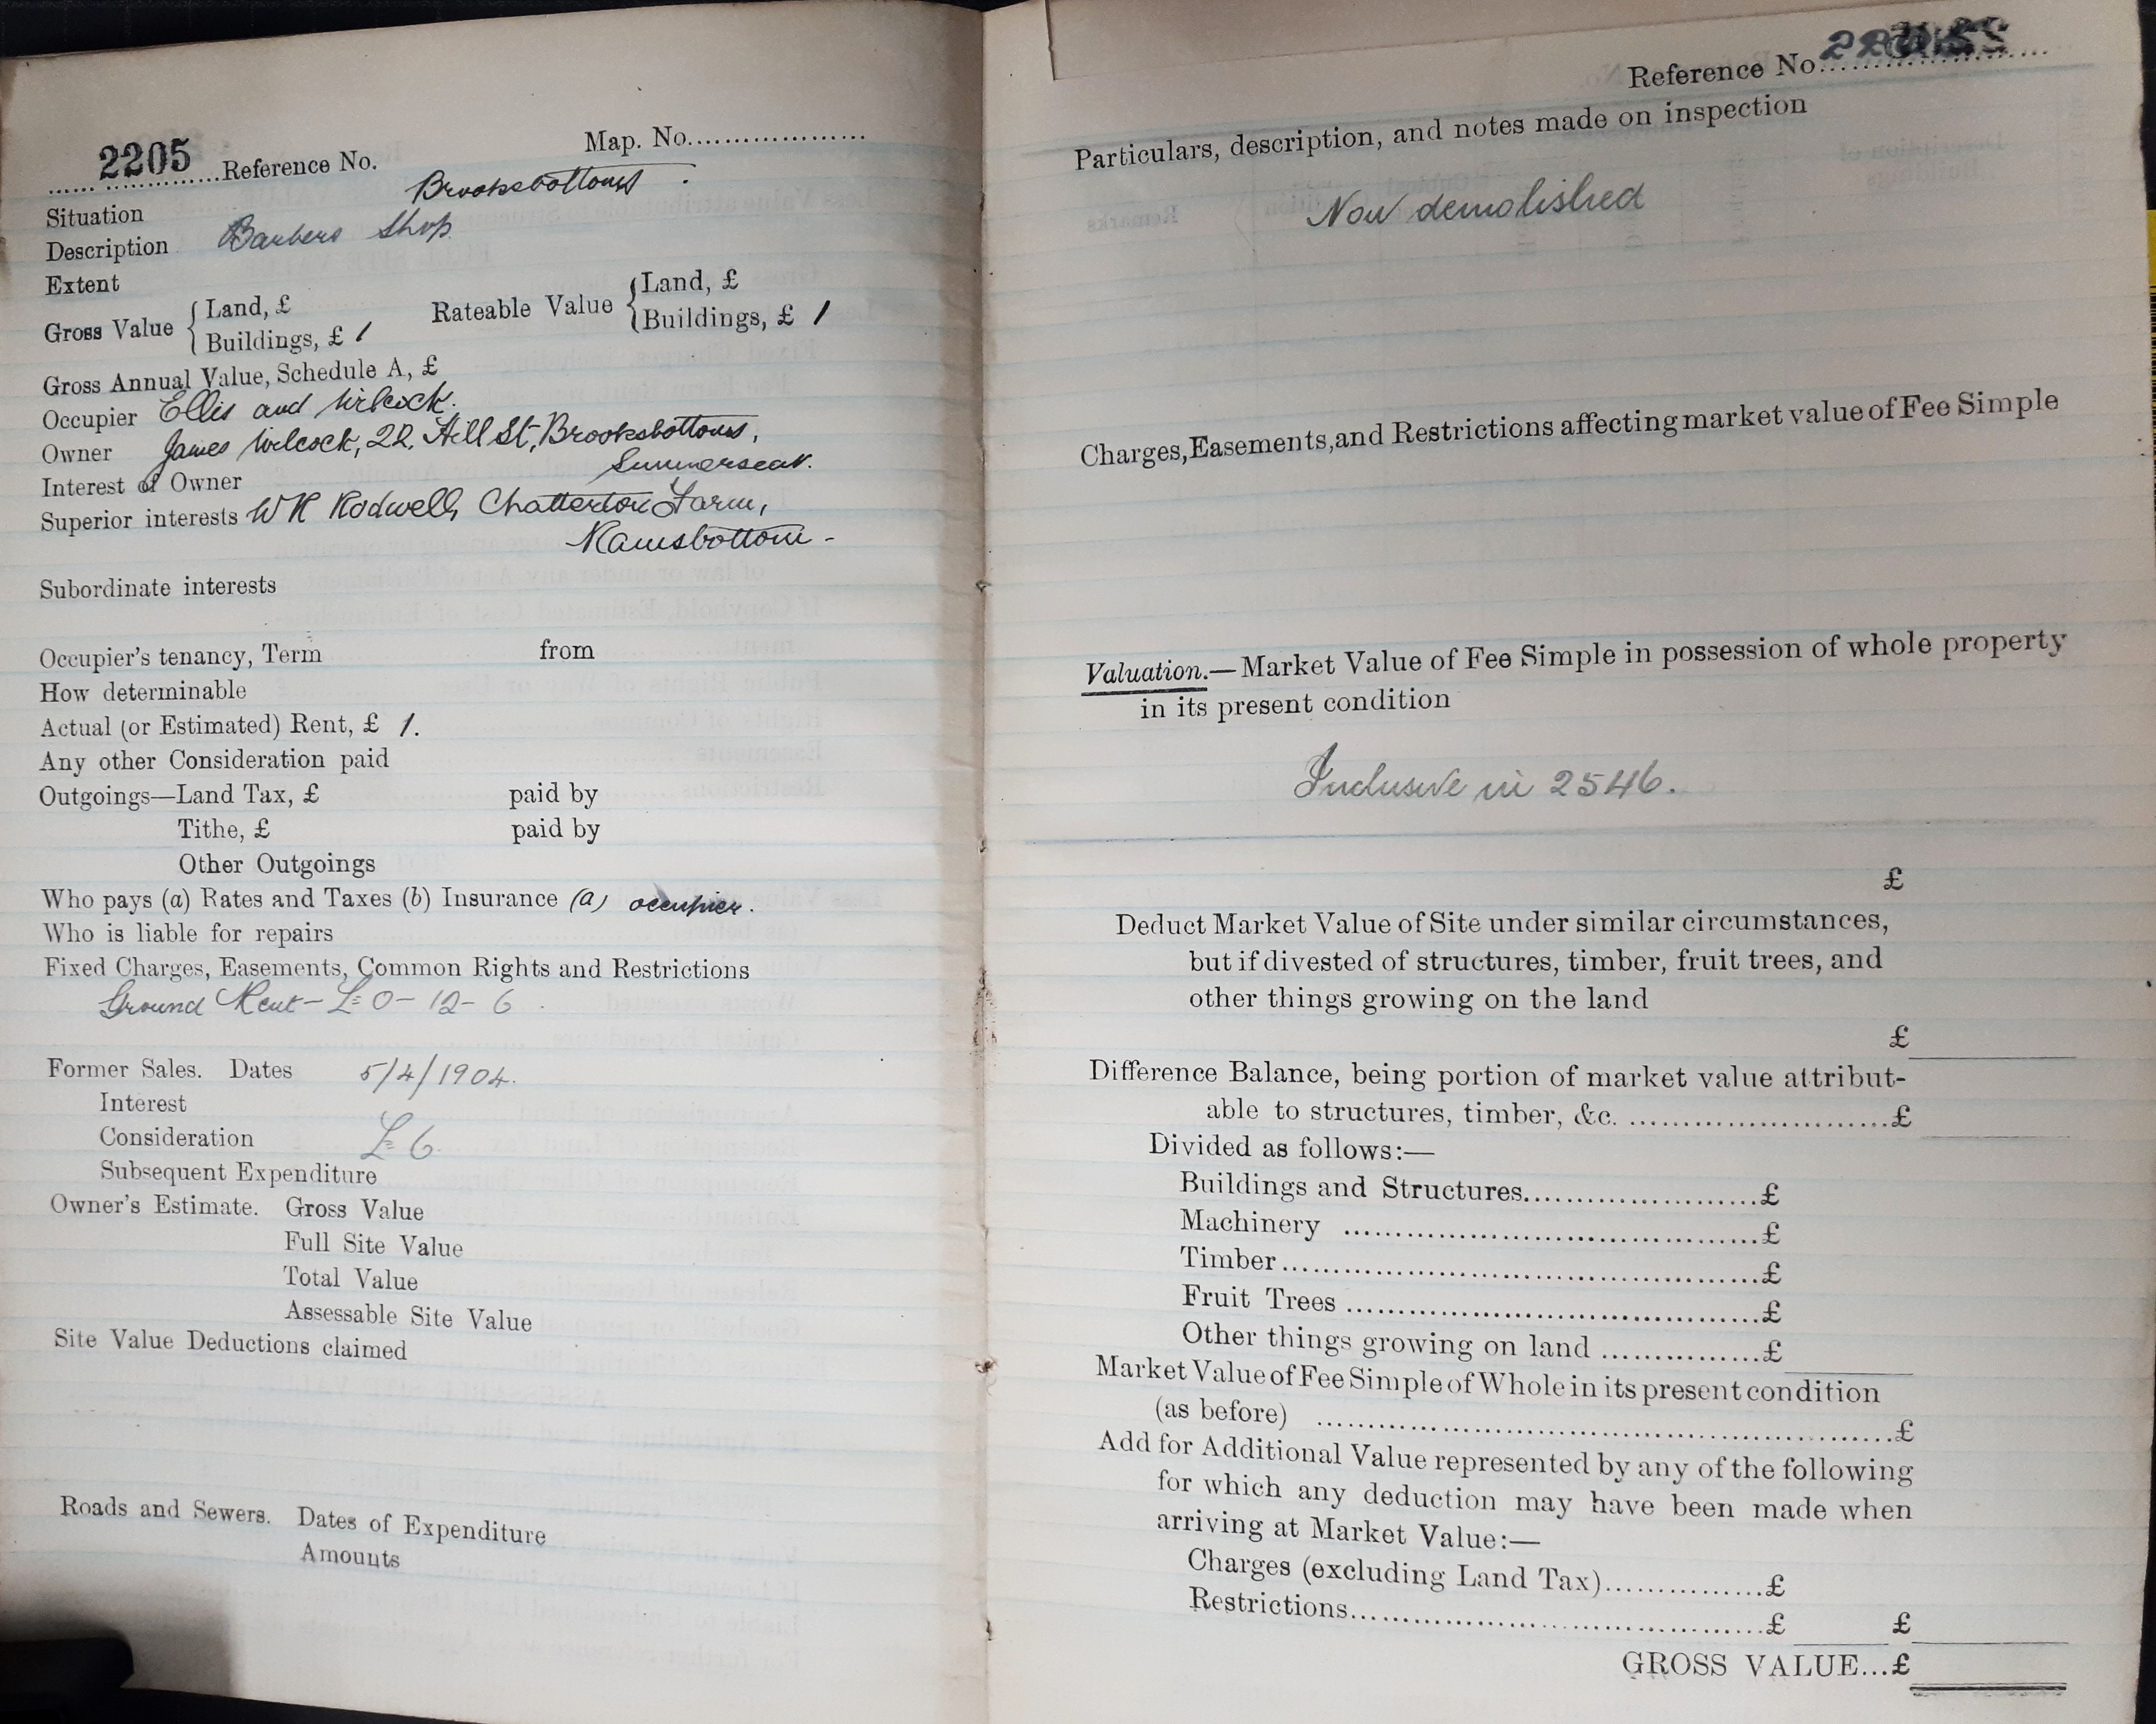 2205 Reference No. Map. No.
Situation Brooksbottoms.
Description Barbers Shop
Extent
Gross Value { Land, £ Rateable Value { Land, £
Buildings, £ 1 Buildings, £ 1
Gross Annual Value, Schedule A, £
Occupier Ellis and Wilcock.
Owner James Wilcock, 22, Hill St, Brooksbottoms,
Summerseat.
Interest of Owner
Superior interests W H Rodwell, Chatterton Farm,
Ramsbottom -
Subordinate interests
Occupier's tenancy, Term from
How determinable
Actual (or Estimated) Rent, £ 1.
Any other Consideration paid
Outgoings—Land Tax, £ paid by
Tithe, £ paid by
Other Outgoings
Who pays (a) Rates and Taxes (b) Insurance (a) occupier.
Who is liable for repairs
Fixed Charges, Easements, Common Rights and Restrictions
Ground Rent - £ 0 - 12 - 6
Former Sales. Dates 5/4/1904.
Interest
Consideration £ 6
Subsequent Expenditure
Owner's Estimate. Gross Value
Full Site Value
Total Value
Assessable Site Value
Site Value Deductions claimed
Roads and Sewers. Dates of Expenditure
Amounts
Reference No.
Particulars, description, and notes made on inspection
Now demolished
Charges, Easements, and Restrictions affecting market value of Fee Simple
Valuation.—Market Value of Fee Simple in possession of whole property
in its present condition
Inclusive in 2546.
£
Deduct Market Value of Site under similar circumstances,
but if divested of structures, timber, fruit trees, and
other things growing on the land
£
Difference Balance, being portion of market value attribut-
able to structures, timber, &c. £
Divided as follows:—
Buildings and Structures £
Machinery £
Timber £
Fruit Trees £
Other things growing on land £
Market Value of Fee Simple of Whole in its present condition
(as before) £
Add for Additional Value represented by any of the following
for which any deduction may have been made when
arriving at Market Value:—
Charges (excluding Land Tax) £
Restrictions £ £
GROSS VALUE...£